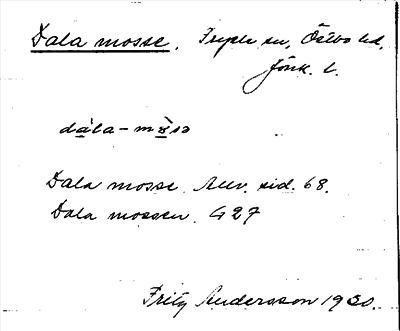 Dala mosse. Tofteryds sn, Östbo hd,
Jönk. l.
dàla-mòsə
Dala mosse. Auv. sid. 68.
Dala mossen. G 27
Fritz Andersson 1930.